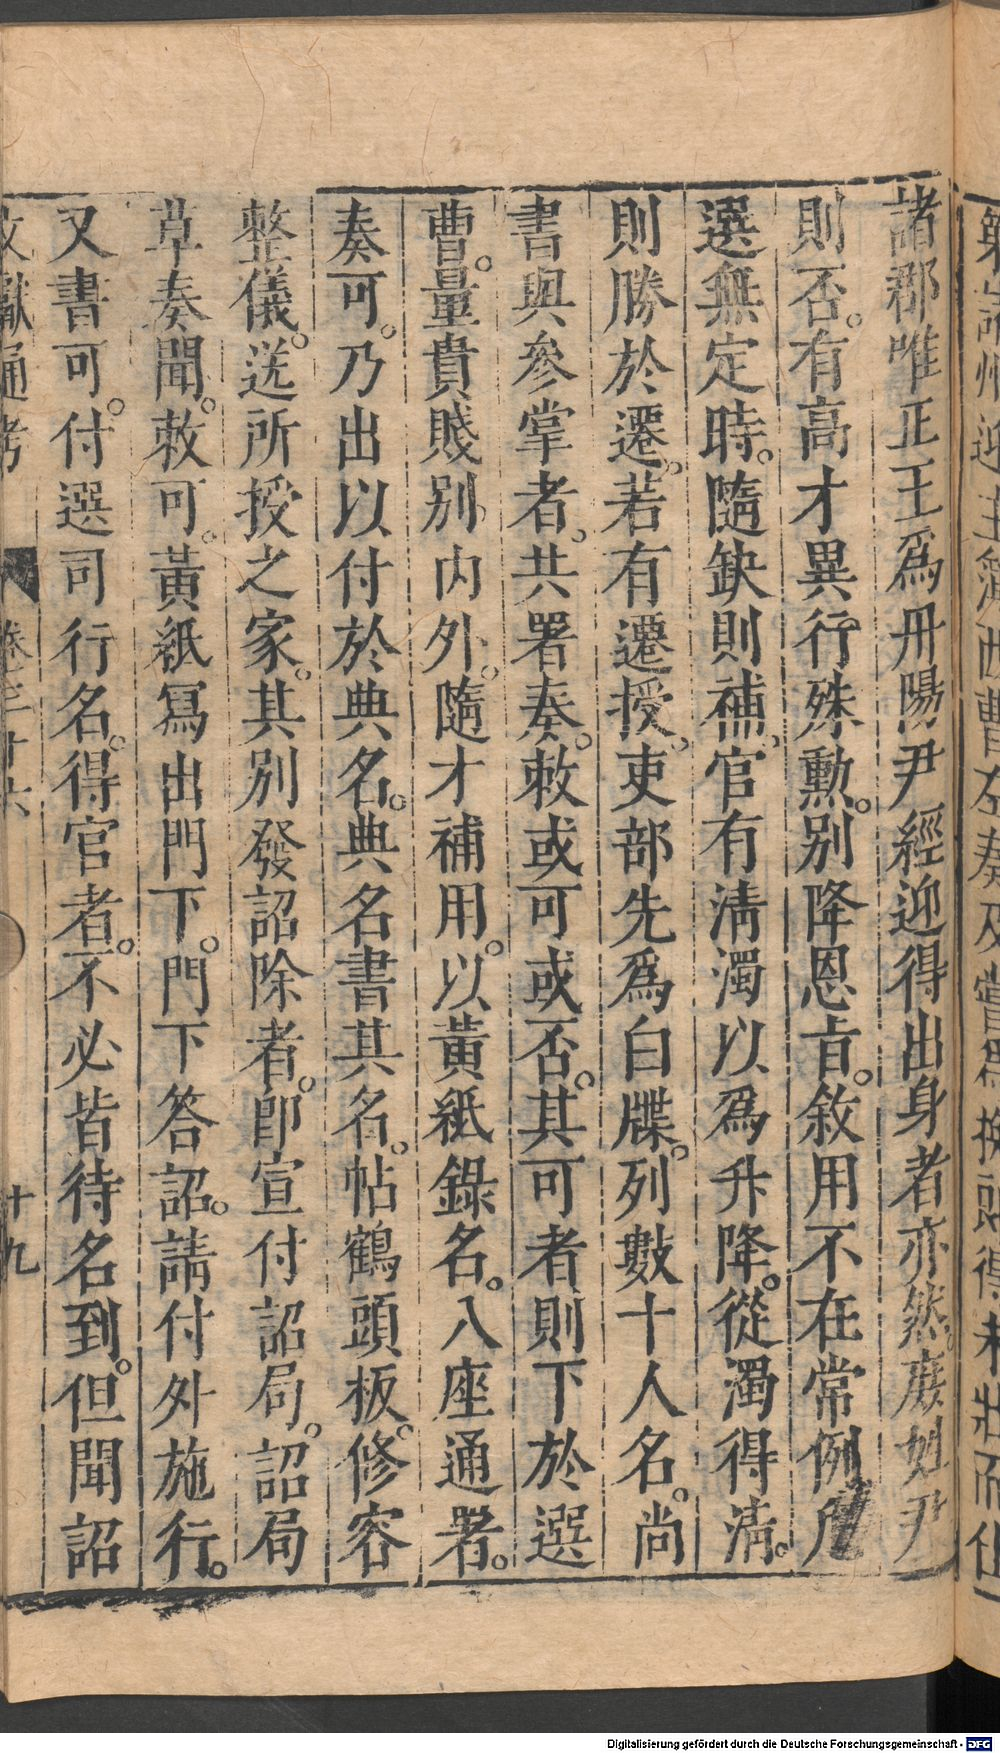 諸郡唯正王爲丹陽尹經迎得出身者亦然庶姓尹
則否。有高才異行殊勳。別降恩旨。敘用不在常例。凡
選無定時。隨缺則補。官有清濁以爲升降。從濁得清。
則勝於遷。若有遷授。吏部先爲白牒。列數十人名。尚
書與參掌者。共署奏。敕或可或否。其可者則下於選
曹。量貴賤別內外。隨才補用。以黃紙錄名。八座通署。
奏可。乃出以付於典名。典名書其名。帖鶴頭板。修容
整儀。送所授之家。其別發詔除者。卽宣付詔局。詔局
草奏聞。敕可。黃紙寫出門下。門下答詔。請付外施行。
又書可。付選司行名。得官者。不必皆待名到。但聞詔
文獻通考 卷三十六 十九
Digitalisierung gefördert durch die Deutsche Forschungsgemeinschaft - DFG